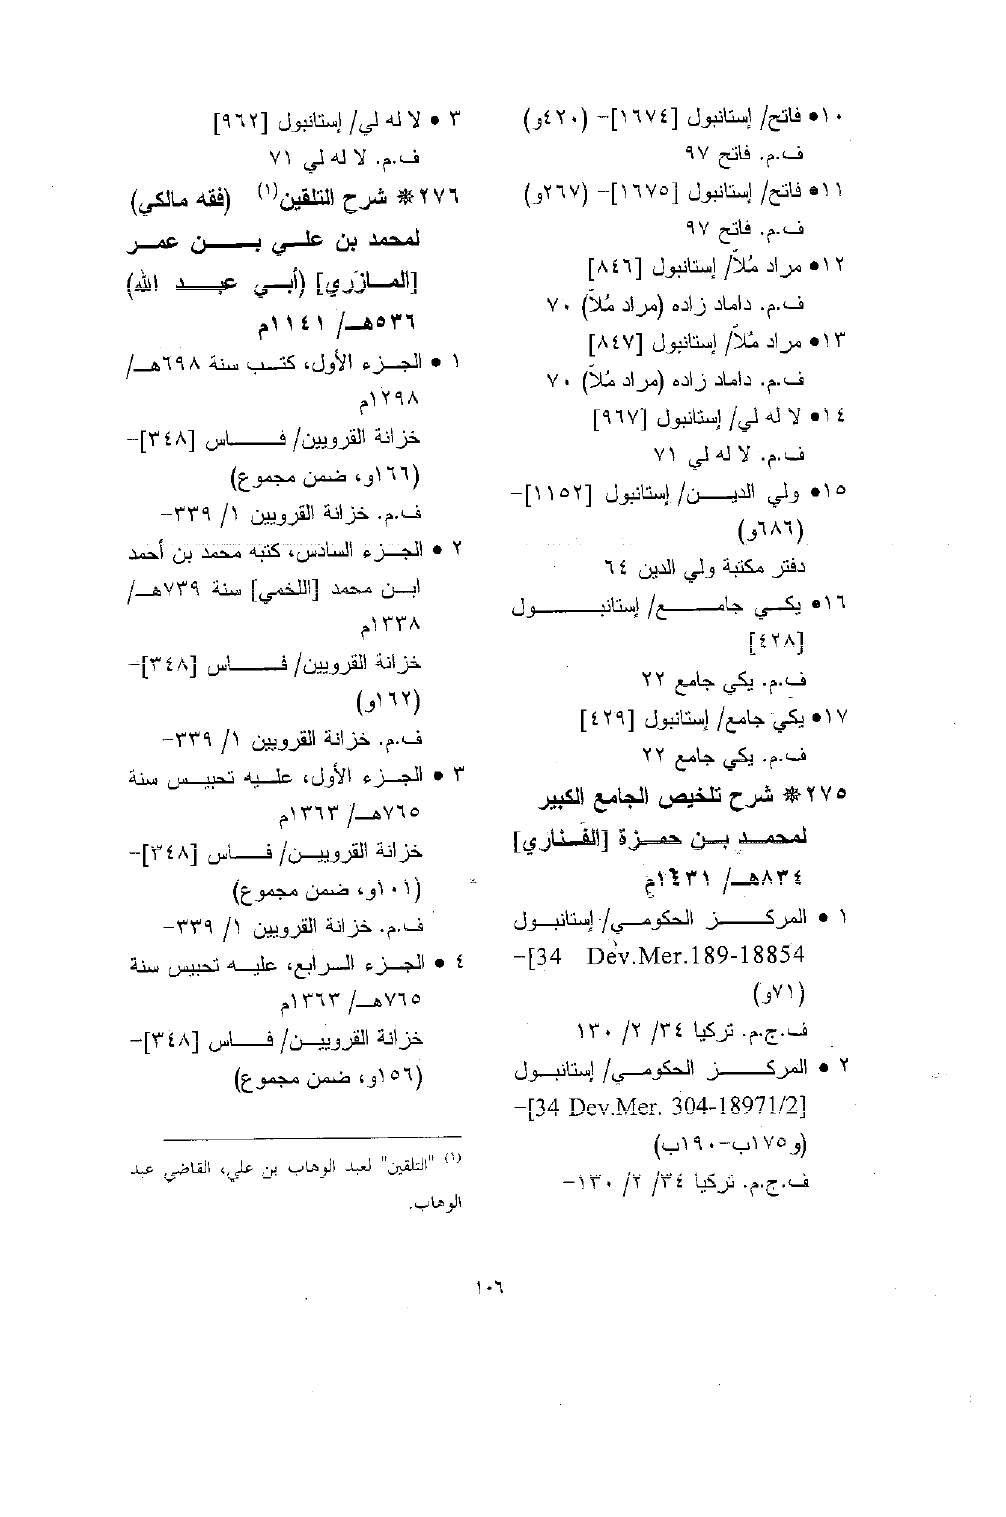 ١٠• فاتح/ إستانبول [١٦٧٤]- (٤٢٠و)
ف.م. فاتح ٩٧
١١• فاتح/ إستانبول [١٦٧٥]- (٢٦٧و)
ف.م. فاتح ٩٧
١٢• مراد مُلاّ/ إستانبول [٨٤٦]
ف.م. داماد زاده (مراد مُلاّ) ٧٠
١٣• مراد مُلاّ/ إستانبول [٨٤٧]
ف.م. داماد زاده (مراد مُلاّ) ٧٠
١٤• لا له لي/ إستانبول [٩٦٧]
ف.م. لا له لي ٧١
١٥• ولي الديـــن/ إستانبول [١١٥٢]-
(٦٨٦و)
دفتر مكتبة ولي الدين ٦٤
١٦• يكـي جامـــع/ إستانبـــــول
[٤٢٨]
ف.م. يكي جامع ٢٢
١٧• يكي جامع/ إستانبول [٤٢٩]
ف.م. يكي جامع ٢٢
٢٧٥* شرح تلخيص الجامع الكبير
لمحمـد بـن حمـزة [الفَنـاري]
٨٣٤هـ/ ١٤٣١م
١ • المركـــز الحكومـي/ إستانبـول
[34 Dev.Mer.189-18854-
(٧١و)
ف.ج.م. تركيا ٣٤/ ٢/ ١٣٠
٢ • المركـــز الحكومـي/ إستانبـول
[34 Dev.Mer. 304-18971/2]-
(و١٧٥ب-١٩٠ب)
ف.ج.م. تركيا ٣٤/ ٢/ ١٣٠-
٣ • لا له لي/ إستانبول [٩٦٢]
ف.م. لا له لي ٧١
٢٧٦* شرح التلقين(١) (فقه مالكي)
لمحمد بن علـي بـــن عمـر
[المـازَري] (أبـي عبـــد الله)
٥٣٦هـ/ ١١٤١م
١ • الجـزء الأول، كتـب سنة ٦٩٨هـ/
١٢٩٨م
خزانة القرويين/ فـــاس [٣٤٨]-
(١٦٦و، ضمن مجموع)
ف.م. خزانة القرويين ١/ ٣٣٩-
٢ • الجـزء السادس، كتبه محمد بن أحمد
ابـن محمد [اللخمي] سنة ٧٣٩هـ/
١٣٣٨م
خزانة القرويين/ فـــاس [٣٤٨]-
(١٦٢و)
ف.م. خزانة القرويين ١/ ٣٣٩-
٣ • الجـزء الأول، علـيه تحبيـس سنة
٧٦٥هـ/ ١٣٦٣م
خزانة القرويـين/ فـــاس [٣٤٨]-
(١٠١و، ضمن مجموع)
ف.م. خزانة القرويين ١/ ٣٣٩-
٤ • الجـزء الـرابع، عليـه تحبيس سنة
٧٦٥هـ/ ١٣٦٣م
خزانة القرويـين/ فـــاس [٣٤٨]-
(١٥٦و، ضمن مجموع)
(١) "التلقين" لعبد الوهاب بن علي، القاضي عبد
الوهاب.
١٠٦